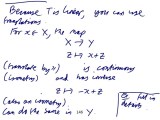 Because T is linear, you can use
translations
For x ∈ X, the map
X → X
z ↦ x+z
(translate by x) is continuous
(isometry) and has inverse
z ↦ -x+z
(also an isometry)
Can do the same in Y
fill in
details